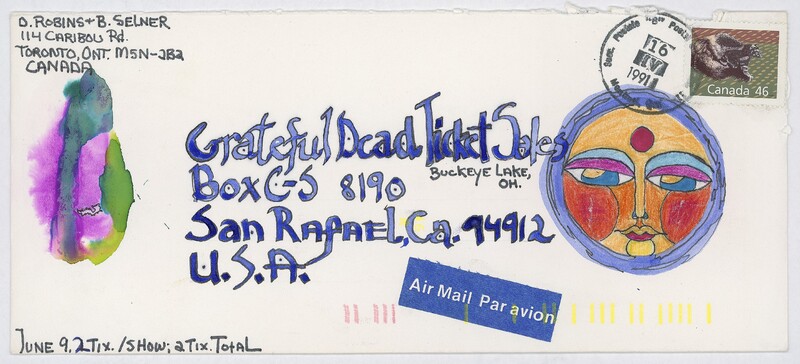 D. ROBINS + B. SELNER
114 CARIBOU Rd.
TORONTO, ONT. M5N-2B2
CANADA
16
IV
1991
Canada 46
Grateful Dead Ticket Sales
BUCKEYE LAKE,
OH.
Box C-S 8190
San RAFAEL, Ca. 94912
U.S.A.
Air Mail Par avion
JUNE 9, 2 TIX. / SHOW; 2 TIX. TOTAL